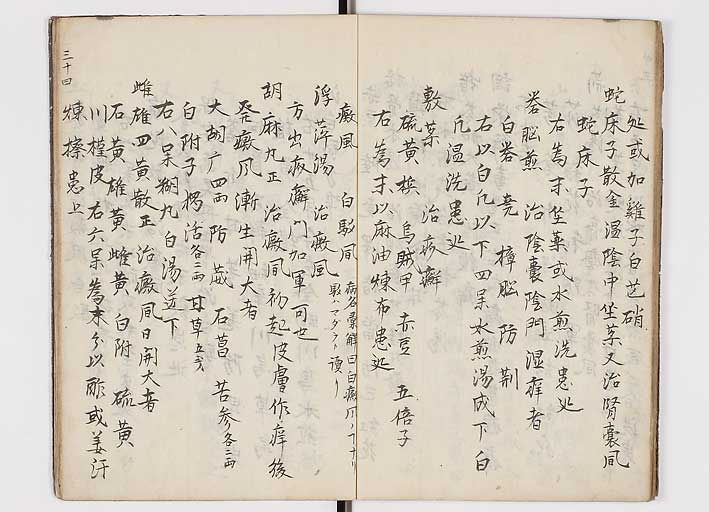 処或加雞子白芒硝
蛇床子散金温陰中坐薬又治腎嚢風
蛇床子
右為末坐薬或水煎洗患処
礬脳煎 治陰嚢陰門湿痒者
白礬 尭 樟脳 防 荊
右以白凡以下四呆水煎湯成下白
凡温洗患処
敷薬 治疥癬
硫黄 梹 烏賊甲 赤豆 五倍子
右為末以麻油煉布患処
癜風 白駁風
病名彙解曰白癜风ノ下ナリ
駁ハマダラト讀リ
浮萍湯 治癜風
方出疥癬门加軍可也
胡麻丸正 治癜風初起皮膚作痒後
發癜风漸生開大者
大胡麻四両 防 威 石菖 苦参各二両
白附子 獨活各二両 甘草五戔
右八呆糊丸白湯送下
雌雄四黄散正 治癜風日開大者
石黄 雄黄 雌黄 白附 硫黄
川槿皮 右六呆為末 以酢或姜汁
煉擦患上
三十四